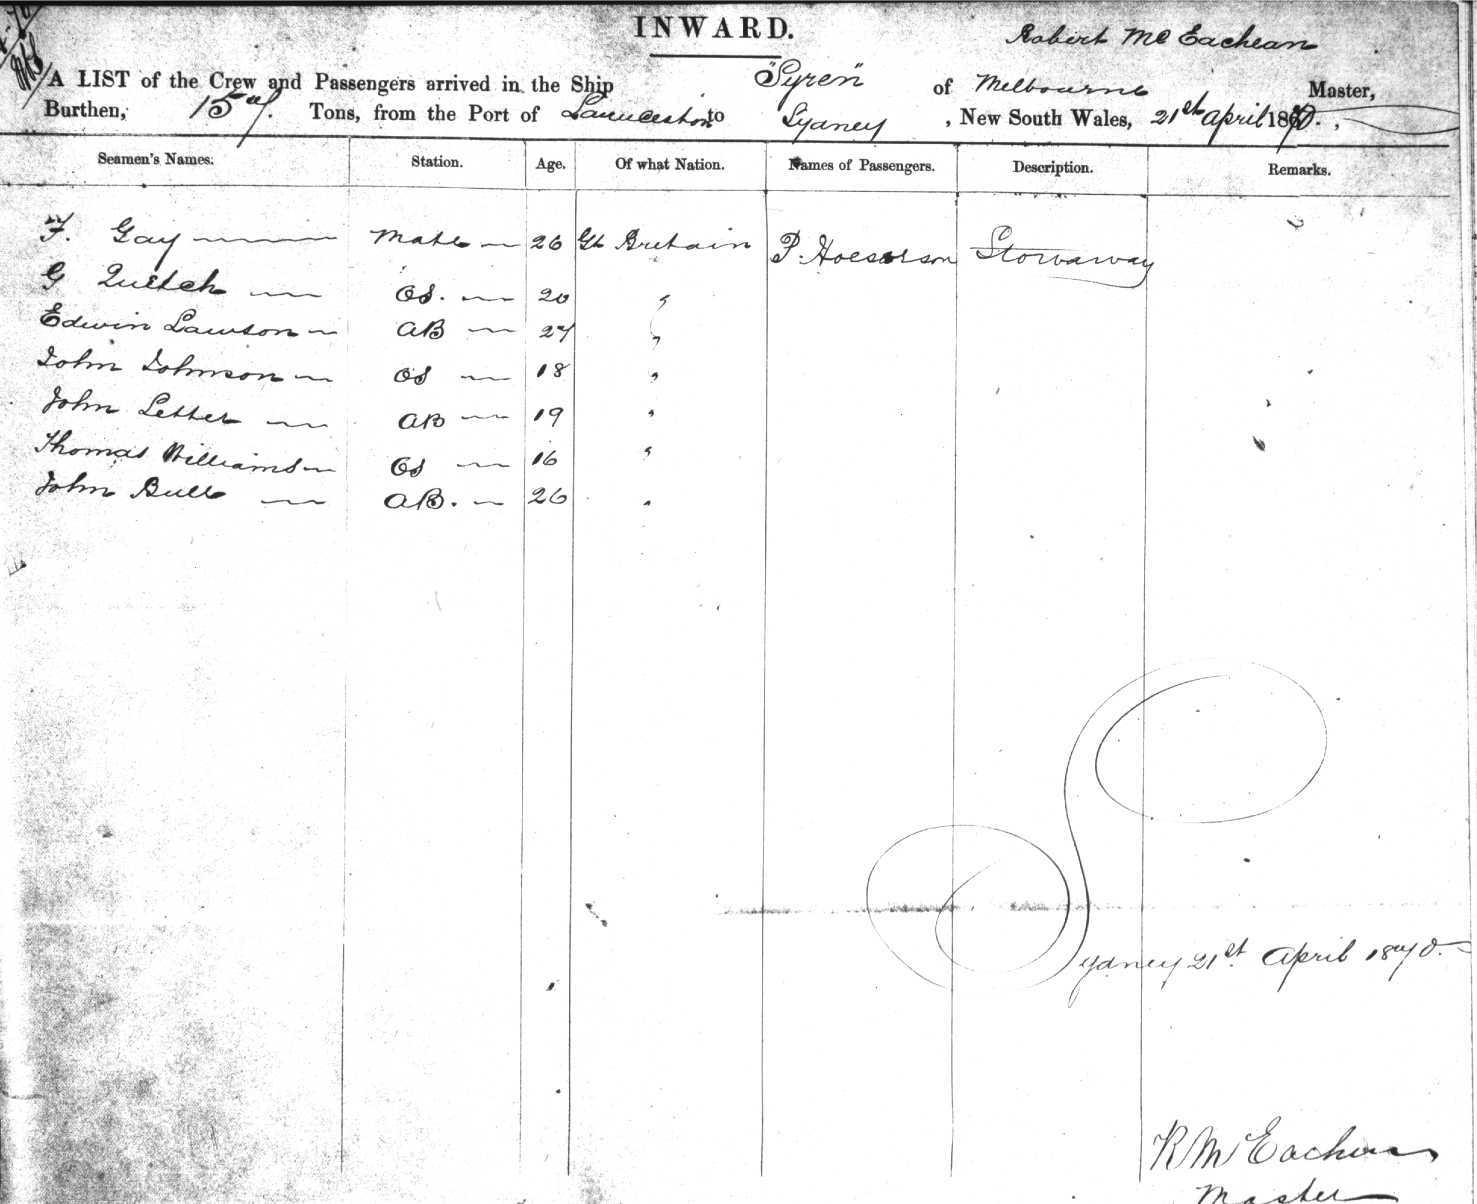 INWARD.
Robert McEachean
A LIST of the Crew and Passengers arrived in the Ship "Syren" of Melbourne Master,
Burthen, Tons, from the Port of Launceston to Sydney, New South Wales, 21st April 1870.,
Seamen's Names. Station. Age. Of what Nation. Names of Passengers. Description. Remarks.
F. Gay Mate 26 Gt Britain P. Stowaway
G OS. 20 "
Edwin Lawson AB 27 "
John Johnson OS 18 "
John Letter AB 19 "
Thomas Williams OS 16 "
John Bull AB. 26 "
Sydney 21st April 1870.
R McEachern
Master